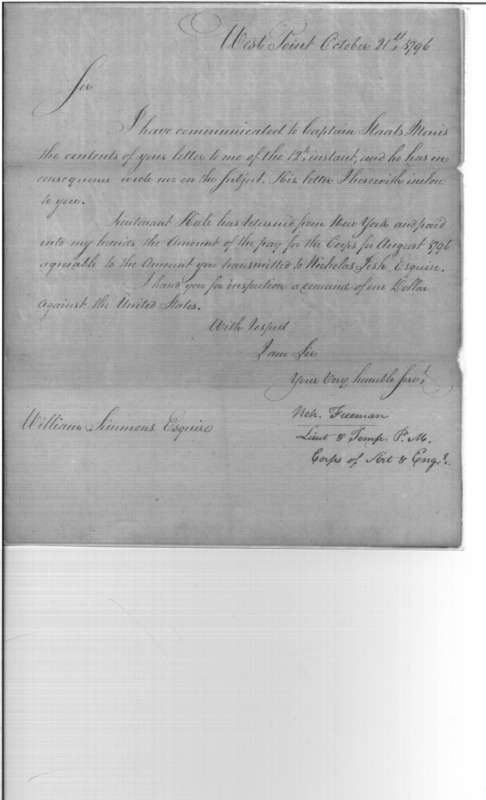 West Point October 21st 1796
Sir
I have communicated to Captain Staats Morris
the contents of your letter to me of the 12th instant, and he has in
consequence wrote me on the subject. His letter I herewith inclose
to you.
Lieutenant Hale has returned from New York and paid
into my hands the Amount of the pay for the Corps for August 1796
agreeable to the Amount you transmitted to Nicholas Fish, Esquire.
I hand you for inspection a demand of one Dollar
against the United States.
With respect
I am Sir
Your Very humble Servt.
Neh. Freeman
Lieut & Temp. P. M.
Corps of Art & Engrs.
William Simmons Esquire